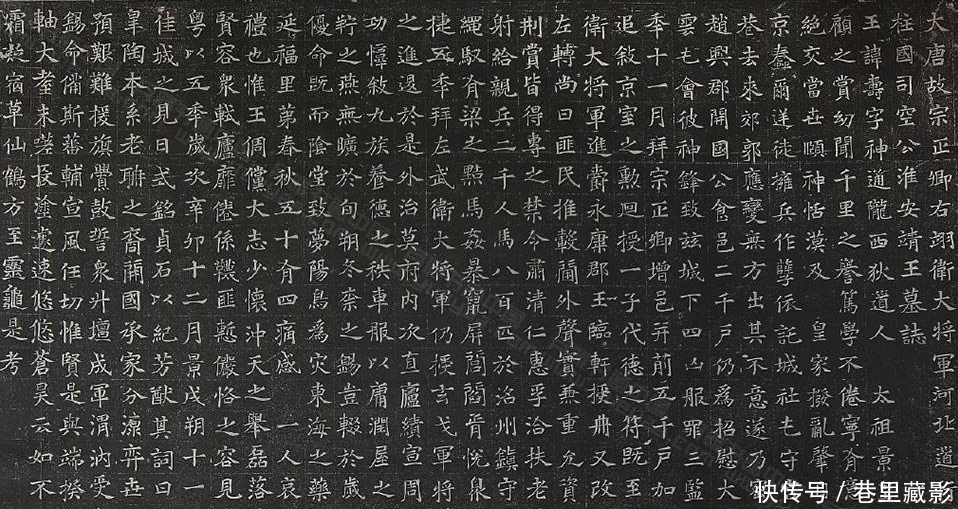 大唐故宗正卿右翊衛大將軍河北道行
柱國司空公淮安靖王墓誌
王諱壽字神通隴西狄道人 太祖景
顧之賞幼聞千里之譽篤學不倦寧肯意
絕交當世頤神恬漠及 皇家撥亂肇
京蠢爾逆徒擁兵作孽依託城社屯守
巷去來郊郭應變無方出其不意遂乃
趙興郡開國公食邑二千戶仍為招慰大
雲屯會彼神鋒致茲城下四凶服罪三監
季十一月拜宗正卿增邑并前五千戶加
追敘京室之勳迴授一子代德之符既至
衛大將軍進爵永康郡王臨軒授冊又改
左轉尚曰匪民推轂蕃外聲實兼重允資
荊賞皆得專之禁令肅清仁惠孚洽扶老
射給親兵二千人馬八百匹於洺州鎮守
繩馭有梁之點馬姦暴竄屏閭閻胥悅泉
捷五季拜左武衛大將軍仍授玄戈軍將
之進退於是外治莫府內次直廬績宣周
功惇敘九族養德之秩車服以庸潤屋之
之燕無曠於旬朔冬桼之錫豈輟於歲
優命既而陰堂致夢陽鳥為災東海之藥
延福里第春秋五十有四痛感 一人哀
禮也惟王倜儻大志少懷沖天之舉磊落
賢容眾軾廬靡倦係襪匪慙儼恪之容見
粵以五季歲次辛卯十二月景戌朔十一
佳城之見日式銘貞石以紀芳猷其詞曰
皋陶本系老聃之裔爾國承家分源弈世
預艱難援旗釁鼓誓眾升壇成軍渭汭受
錫命備斯蕃輔宣風任切惟賢是與端揆
軸大耋未嗟長塗遽速悠悠蒼昊云如不
霜凝宿草仙鶴方至靈龜是考
快传号 / 巷里藏影